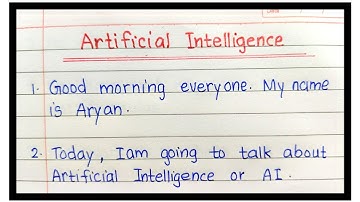 Artificial Intelligence
1. Good morning everyone. My name
is Aryan.
2. Today, I am going to talk about
Artificial Intelligence or AI.